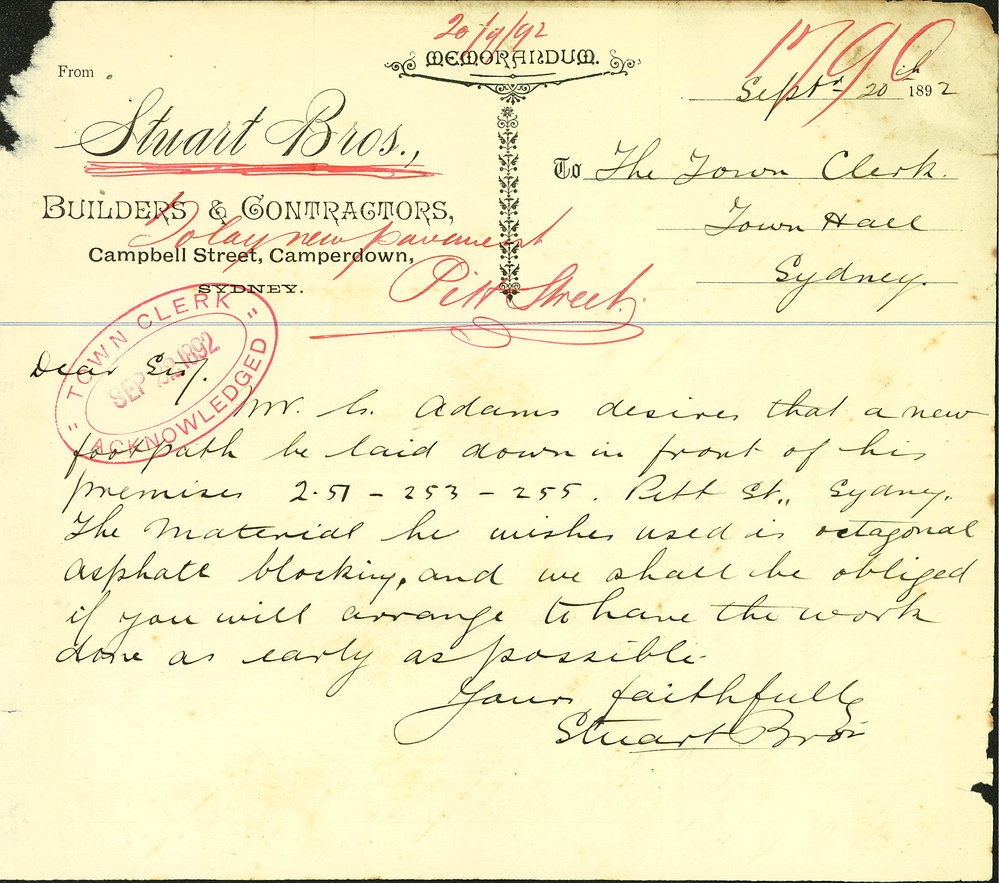 20/9/92
MEMORANDUM.
1790
From
Septr 20th 1892
Stuart Bros.,
To The Town Clerk.
BUILDERS & CONTRACTORS,
Town Hall
To lay new pavement
Campbell Street, Camperdown,
Sydney.
SYDNEY.
Pitt Street.
TOWN CLERK
SEP 1892
ACKNOWLEDGED
Dear Sir,
Mr. G. Adams desires that a new
footpath be laid down in front of his
premises 251 - 253 - 255. Pitt St., Sydney.
The Material he wishes used is octagonal
asphalt blocking, and we shall be obliged
if you will arrange to have the work
done as early as possible.
Yours faithfully
Stuart Bros